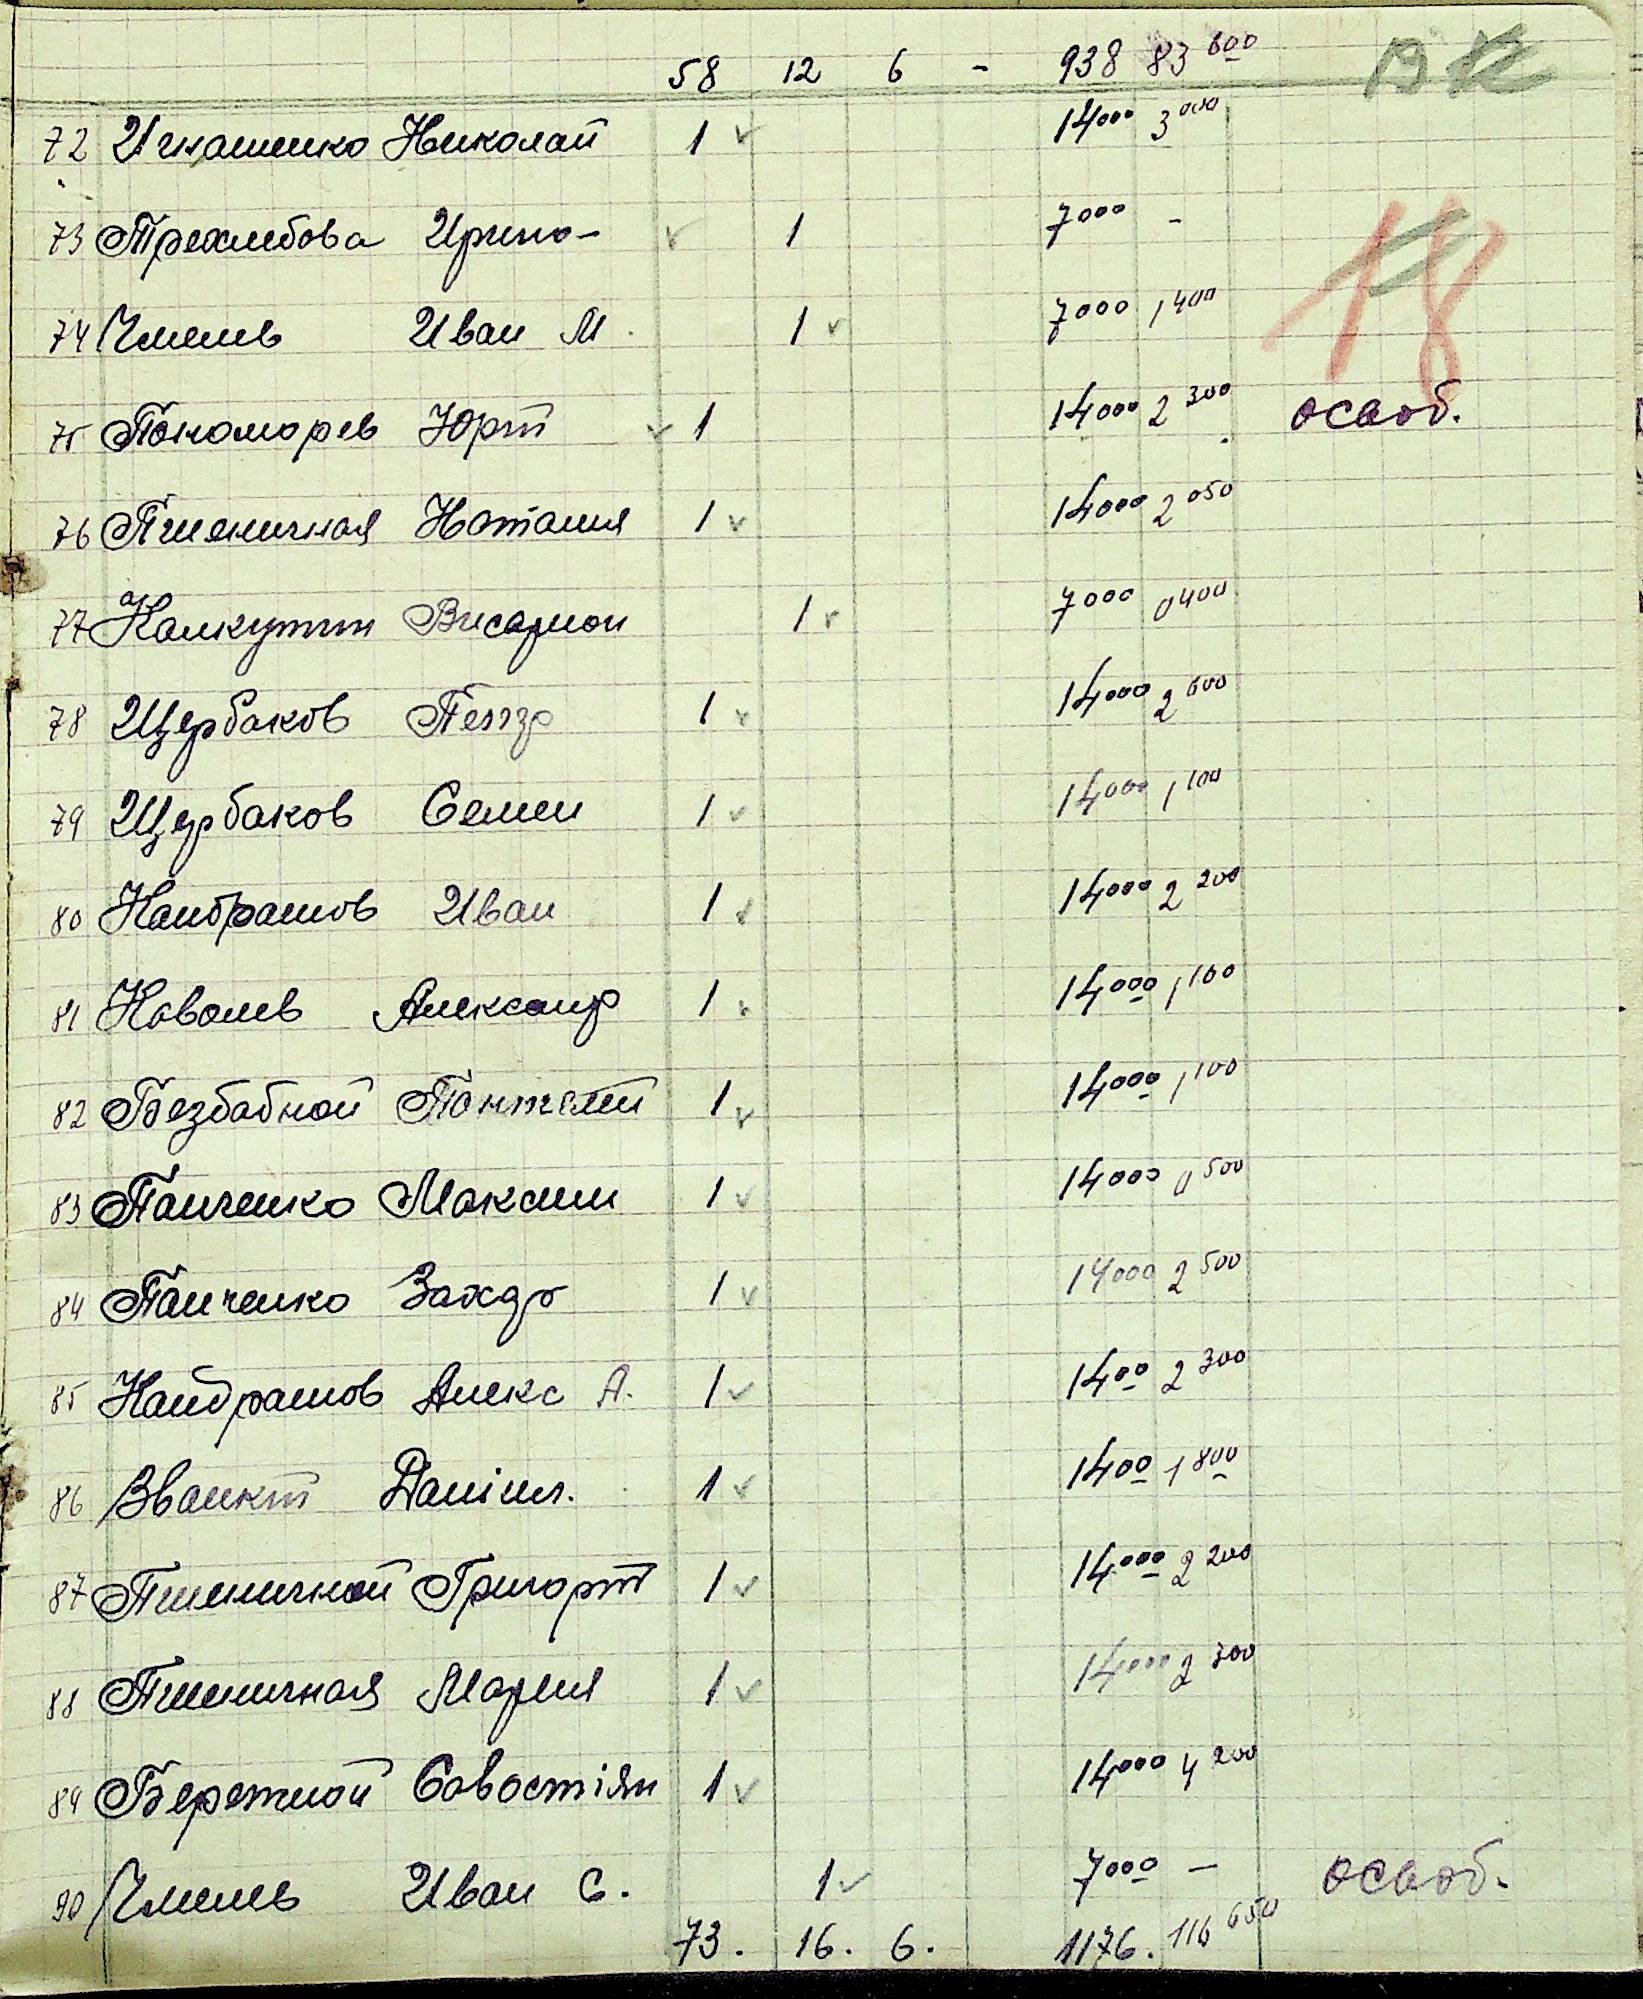 58 12 6 - 938 83 600 19
72 Игнашенко Николай 1 14000 3 000
73 Трехлебова Ирина - 1 7000 -
18
74 Чмелев Иван М. 1 7000 1 400
75 Пономарев Юрій 1 14000 2 300 освоб.
76 Пшеничная Наталия 1 14000 2 050
77 Калкутин Висарион 1 7000 0 400
78 Щербаков Петр 1 14000 2 600
79 Щербаков Семен 1 14000 1 100
80 Кандрашов Иван 1 14000 2 200
81 Ковалев Александр 1 14000 1 100
82 Безбабной Пантелей 1 14000 1 100
83 Панченко Максим 1 14000 0 500
84 Панченко Захар 1 14000 2 500
85 Кандрашов Алекс А. 1 1400 2 300
86 Даніил. 1 1400 1 800
87 Пшеничной Григорій 1 14000 2 200
88 Пшеничная Мария 1 14000 2 300
89 Бережной Савостіян 1 14000 4 200
90 Чмелев Иван С. 1 7000 - освоб.
73. 16. 6. 1176. 116 650